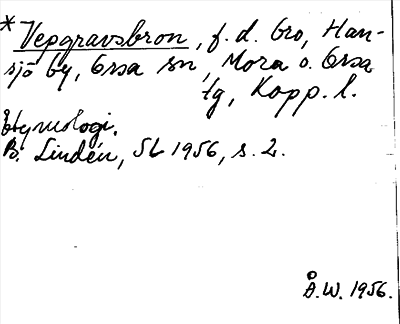 * Vepgravsbron, f. d. bro, Han-
sjö by, Orsa sn, Mora o. Orsa
tg, Kopp. l.
Etymologi.
B. Lindén, SL 1956, s. 2.
Å.W. 1956.